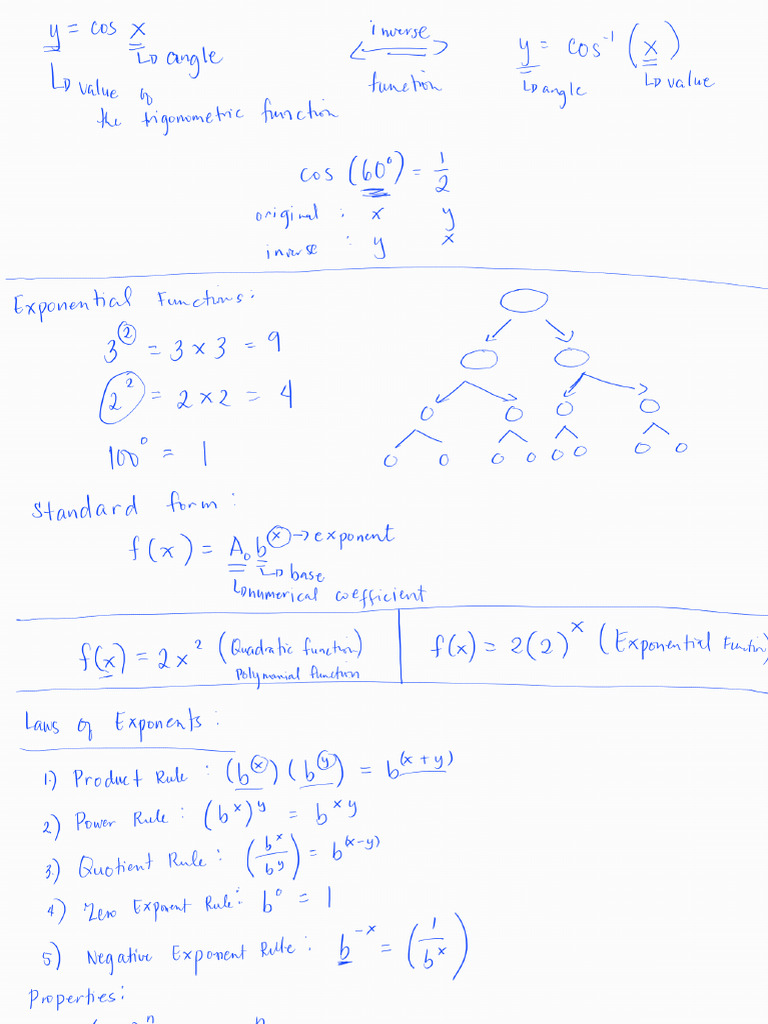 y = cos x
↳ angle
↳ value of
the trigonometric function
inverse
function
y = cos⁻¹ (x)
↳ angle ↳ value
cos (60°) = 1/2
original : x y
inverse : y x
Exponential Functions:
3² = 3 × 3 = 9
2² = 2 × 2 = 4
100⁰ = 1
Standard form :
f(x) = A₀ b^x → exponent
↳ base
↳ numerical coefficient
f(x) = 2x² (Quadratic function)
Polynomial function
f(x) = 2(2)^x (Exponential Function)
Laws of Exponents :
1.) Product Rule : (b^x)(b^y) = b^(x+y)
2) Power Rule : (b^x)^y = b^xy
3.) Quotient Rule : (b^x/b^y) = b^(x-y)
4) Zero Exponent Rule: b⁰ = 1
5) Negative Exponent Rule : b^-x = (1/b^x)
Properties: